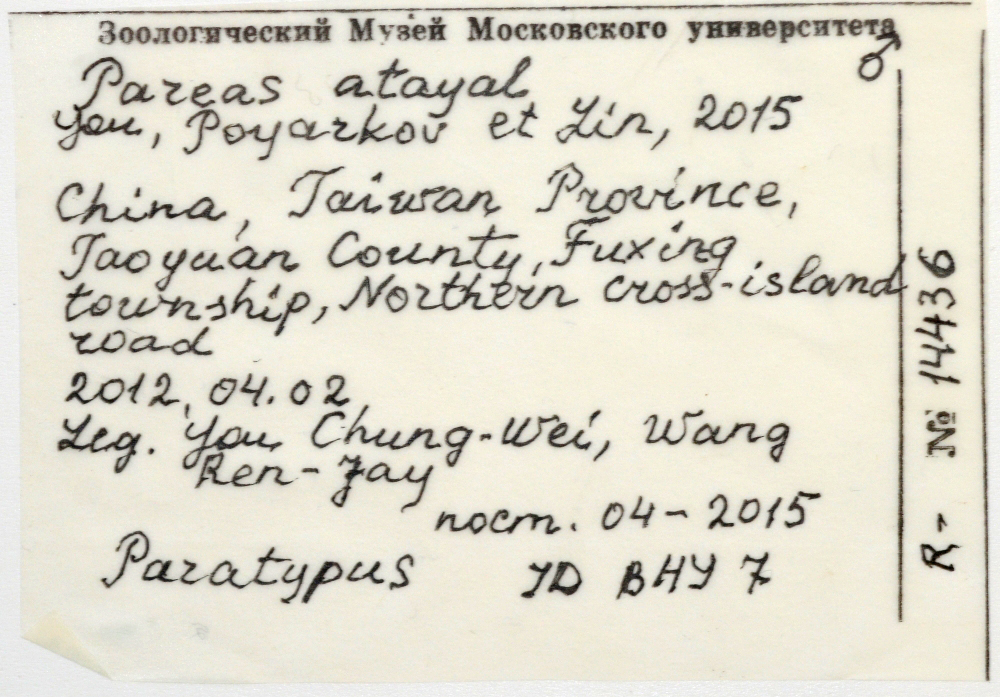 Зоологический Музей Московского университета
♂
Pareas atayal
You, Poyarkov et Lin, 2015
China, Taiwan Province,
Taoyuan County, Fuxing
township, Northern cross-island
road
2012, 04.02
Leg. You Chung-Wei, Wang
Ren-Jay
пост. 04-2015
Paratypus ID ВНУ 7
R- № 14436